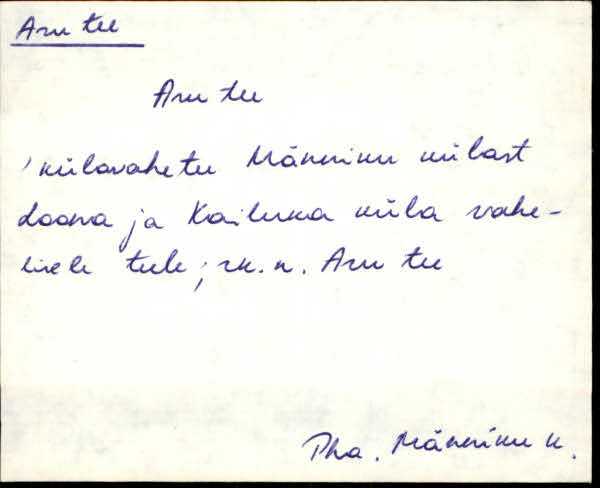 Aru tee
Aru tee
'külavahetee Männiku külast
Loona ja Kailuka küla vahe-
lisele teele; rk. n. Aru tee
Pha. Männiku k.